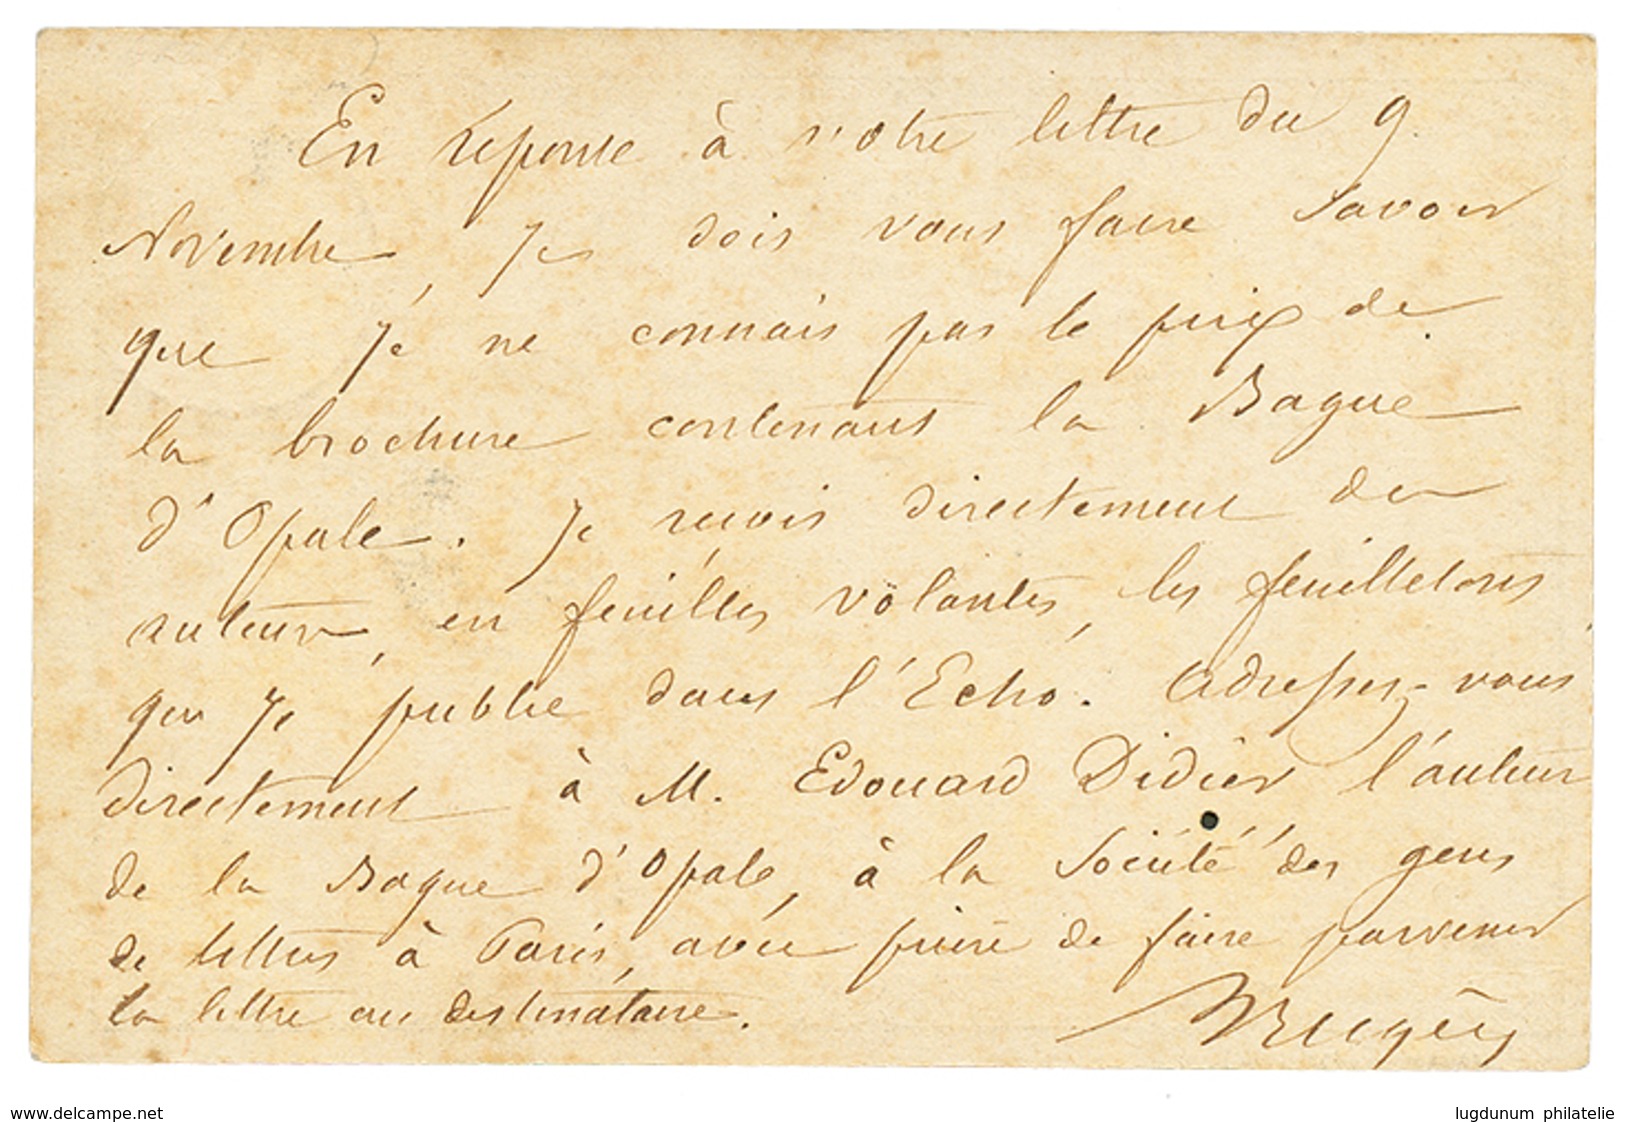 En réponse à votre lettre du 9
Novembre, je dois vous faire savoir
que je ne connais pas le prix de
la brochure contenant la Bague
d'Opale. Je reçois directement de
auteur, en feuilles volantes, les feuilletons
que je publie dans l'Echo. Adressez-vous
directement à M. Edouard Didier l'auteur
de la Bague d'Opale, à la Société des gens
de lettres à Paris, avec prière de faire parvenir
la lettre au destinataire.
www.delcampe.net
lugdunum philatelie